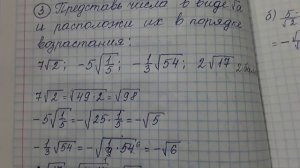 ③ Представь числа в виде √a
и расположи их в порядке
возрастания:
7√2; -5√(1/5); -1/3√54; 2√17
7√2 = √(49·2) = √98
-5√(1/5) = -√(25·1/5) = -√5
-1/3√54 = -√(1/9·54) = -√6
б)